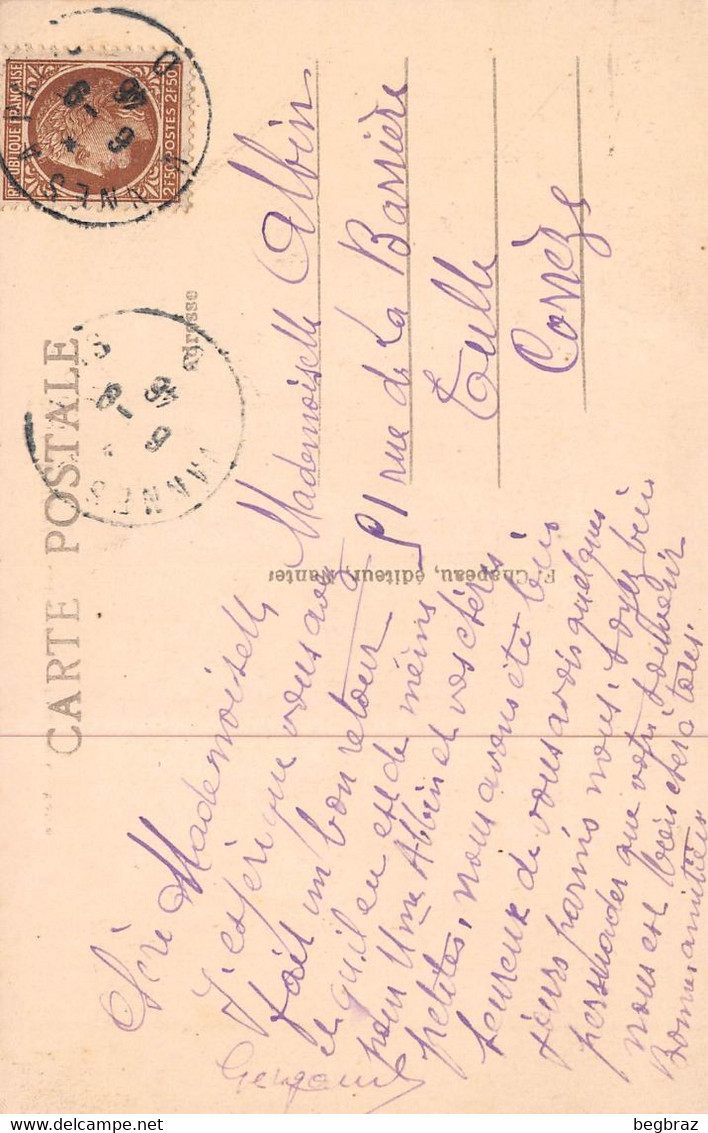 CARTE POSTALE
Adresse
F. Chapeau, éditeur, Nantes
REPUBLIQUE FRANÇAISE
2F50 POSTES 2F50
VANNES
VANNES
Mademoiselle Albin
51 rue de La Barrière
Tulle
Corrèze
Chère Mademoiselle
J'espère que vous avez
fait un bon retour
et qu'il en est de même
pour Mme Albin et vos chères
petites, nous avons été bien
heureux de vous avoir quelques
jours parmis nous. Soyez bien
persuader que votre
nous est bien cher à tous.
Bonnes amitiées
begbraz
www.delcampe.net